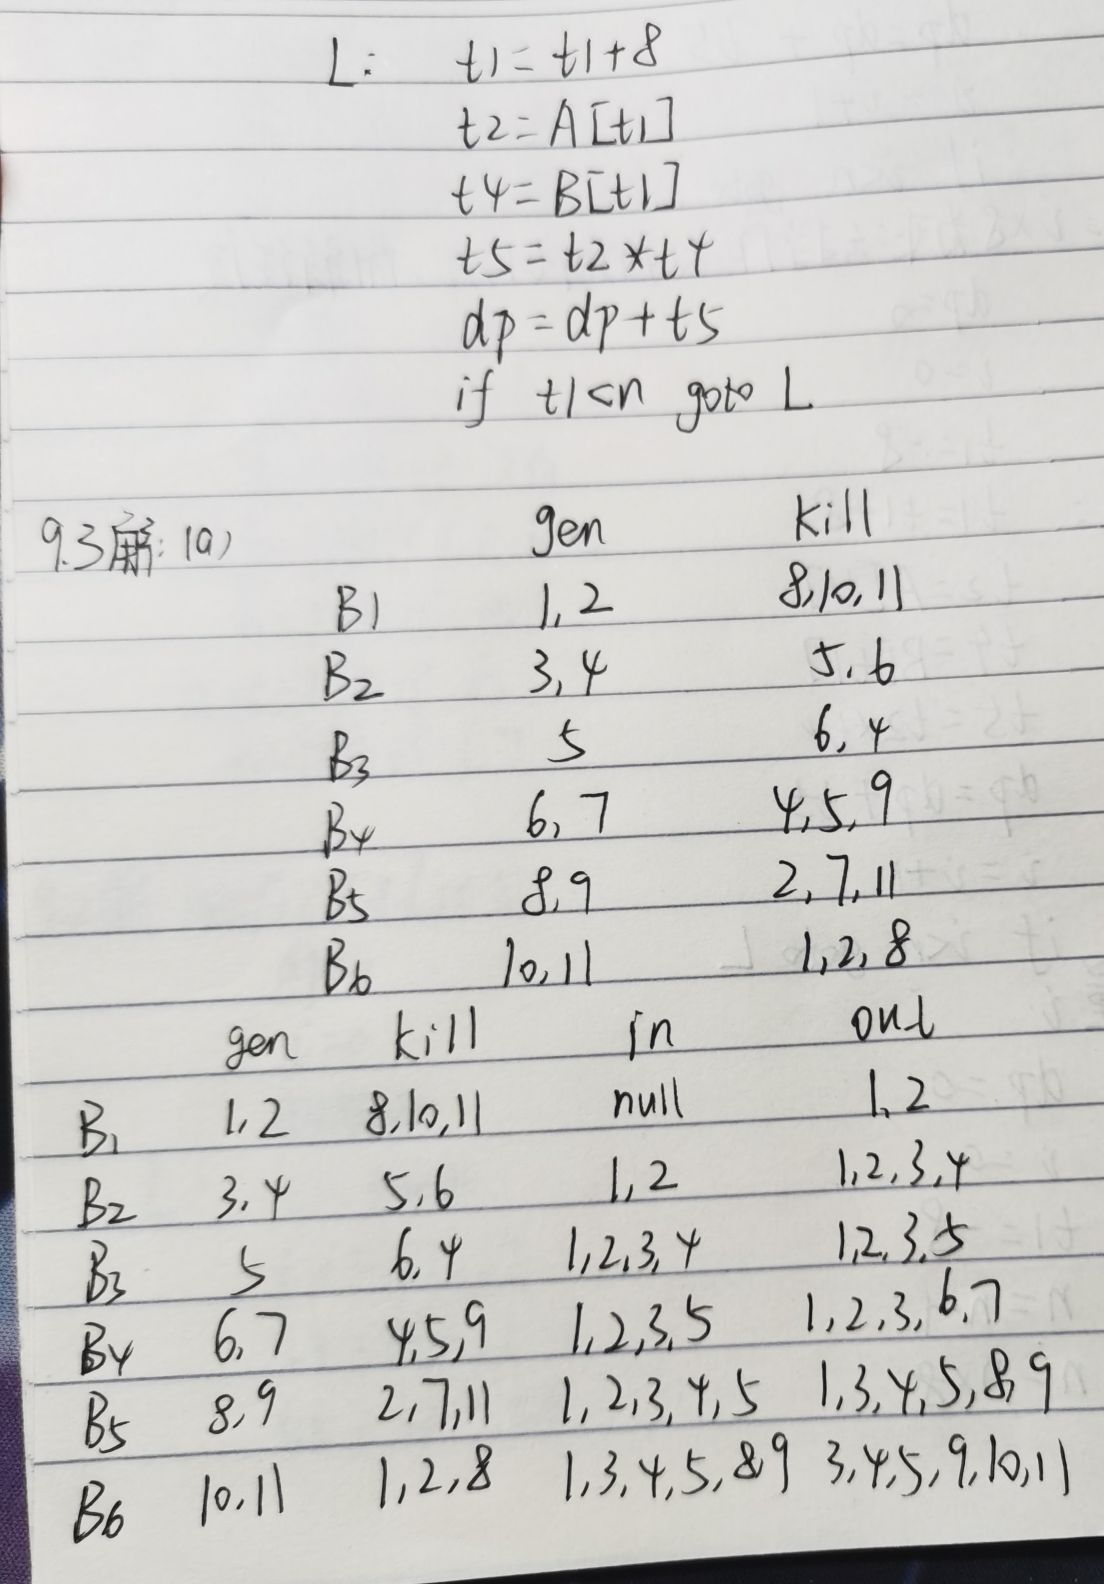 L: t1=t1+8
t2=A[t1]
t4=B[t1]
t5=t2*t4
dp=dp+t5
if t1<n goto L
9.3解:(a) gen kill
B1 1,2 8,10,11
B2 3,4 5,6
B3 5 6,4
B4 6,7 4,5,9
B5 8,9 2,7,11
B6 10,11 1,2,8
gen kill in out
B1 1,2 8,10,11 null 1,2
B2 3,4 5,6 1,2 1,2,3,4
B3 5 6,4 1,2,3,4 1,2,3,5
B4 6,7 4,5,9 1,2,3,5 1,2,3,6,7
B5 8,9 2,7,11 1,2,3,4,5 1,3,4,5,8,9
B6 10,11 1,2,8 1,3,4,5,8,9 3,4,5,9,10,11